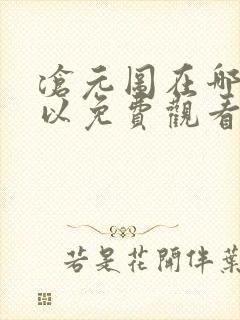 滄元圖在哪
以免費觀看
若是花開伴葉